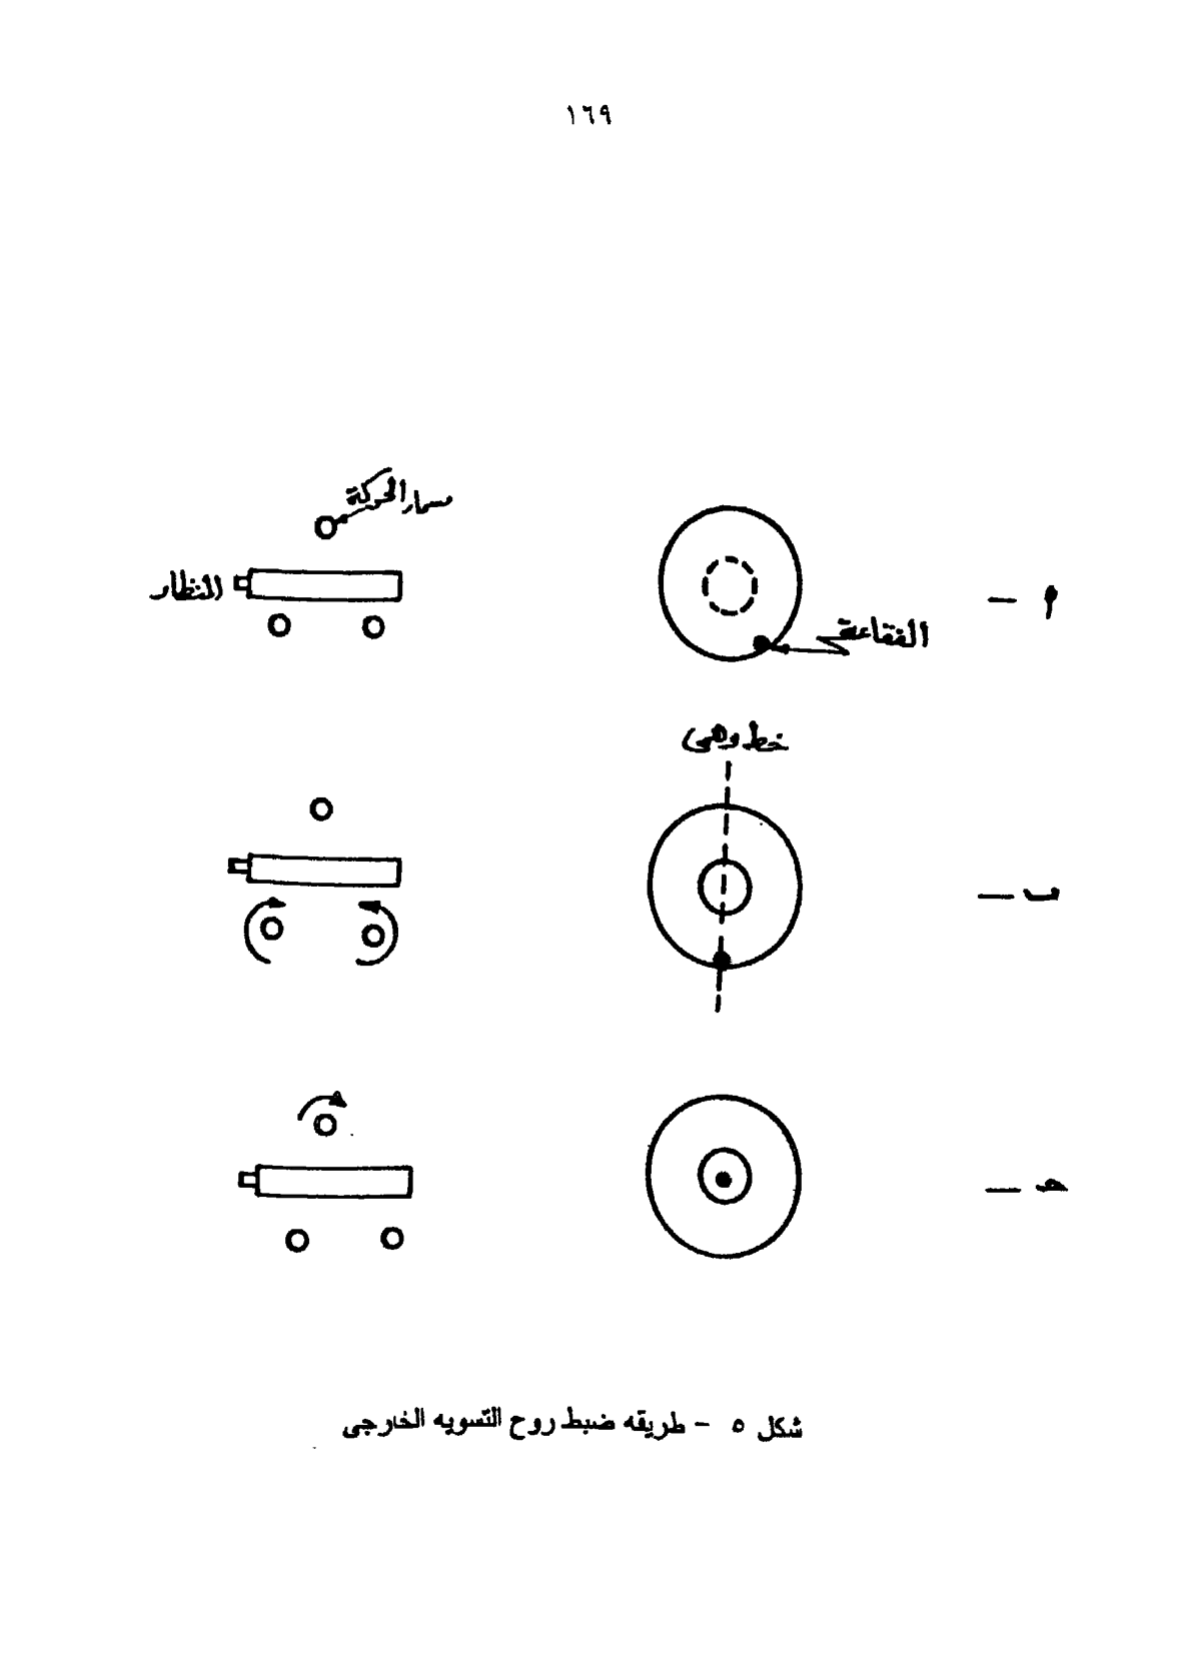 ١٦٩
مسمار الحركة
المنظار
أ -
الفقاعة
خط وهمى
ب -
حـ -
شكل ٥ - طريقه ضبط روح التسويه الخارجى